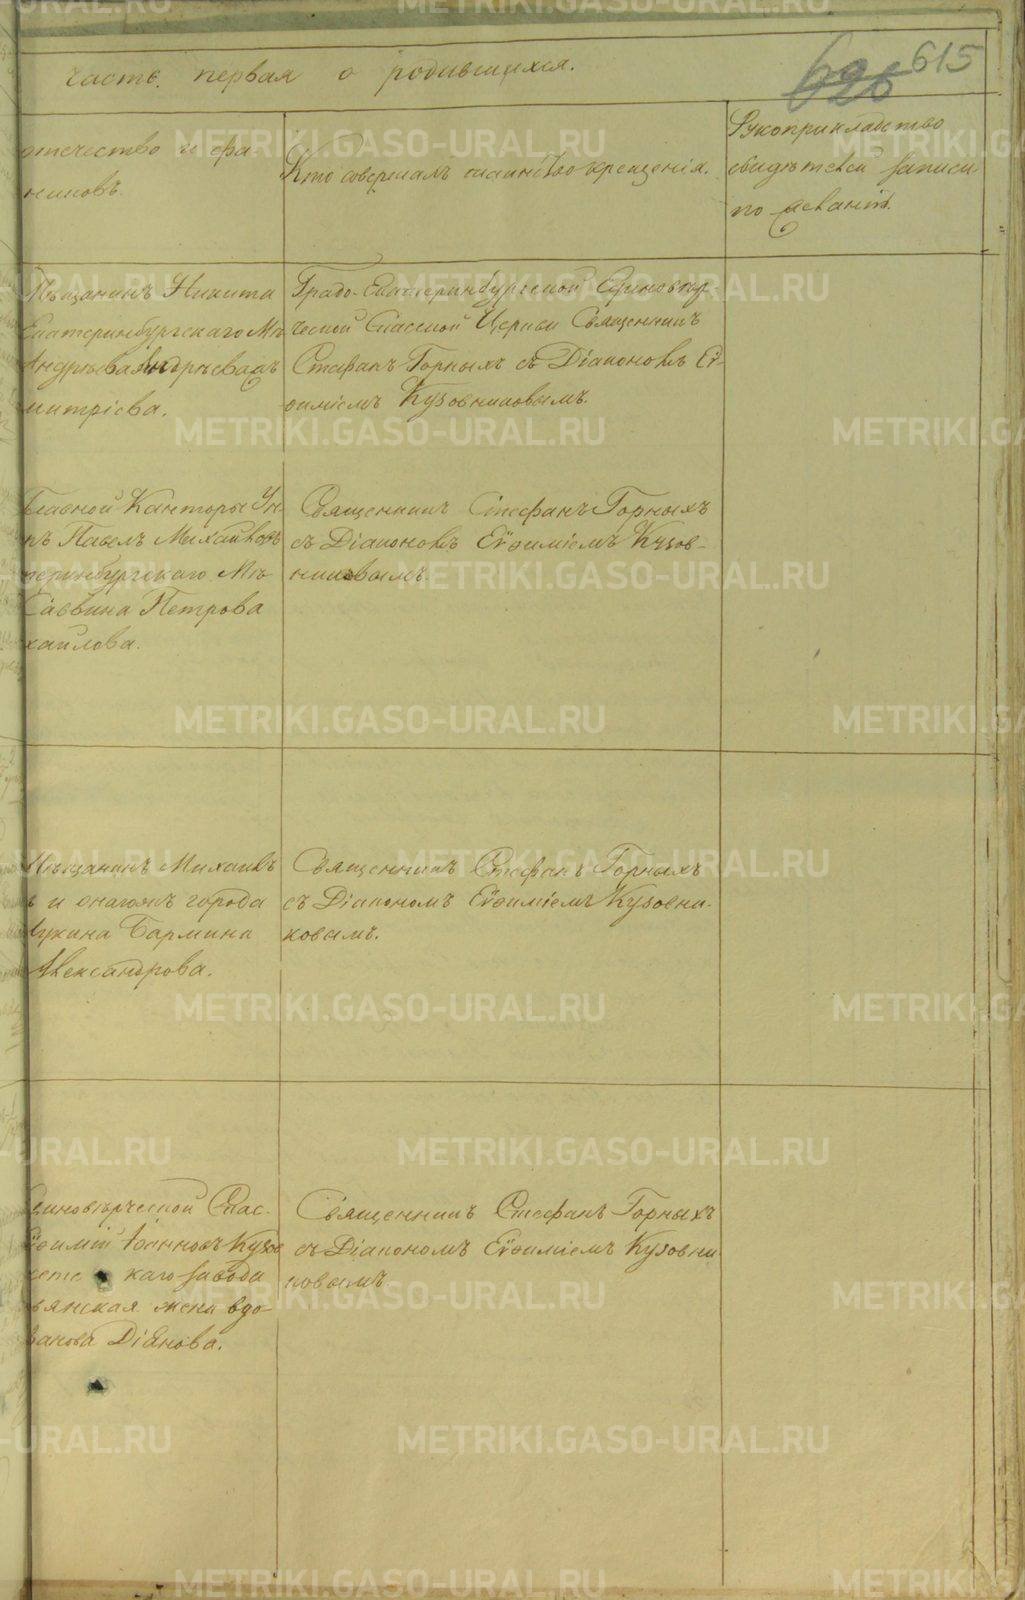 часть первая о родившихся.
626 615
отчество и фа-
миловъ.
Кто совершалъ таинство крещенія.
Рукоприкладство
свидѣтелей записи
по желанію.
Мѣщанинъ Никита
Екатеринбургскаго Мѣ
Андрѣева
митріева.
Градо-Екатеринбургской Единовѣр-
ческой Спасской Церкви Священникъ
Стефанъ Горныхъ съ Діакономъ Еѵ-
ѳиміемъ Кузовниковымъ.
Главной Канторы Ун-
къ Павелъ Михайловъ
теринбургскаго Мѣ
Саввина Петрова
хайлова.
Священникъ Стефанъ Горныхъ
съ Діакономъ Еѵѳиміемъ Кузов-
никовымъ.
Мѣщанинъ Михаилъ
и онагожъ города
Лукина Бармина
Александрова.
Священникъ Стефанъ Горныхъ
съ Діакономъ Еѵѳиміемъ Кузовни-
ковымъ.
диновѣрческой Спас-
ѵѳимій Іоанновъ Кузов
каго завода
янская жена вдо-
ванова Діянова.
Священникъ Стефанъ Горныхъ
съ Діакономъ Еѵѳиміемъ Кузовни
ковымъ
METRIKI.GASO-URAL.RU